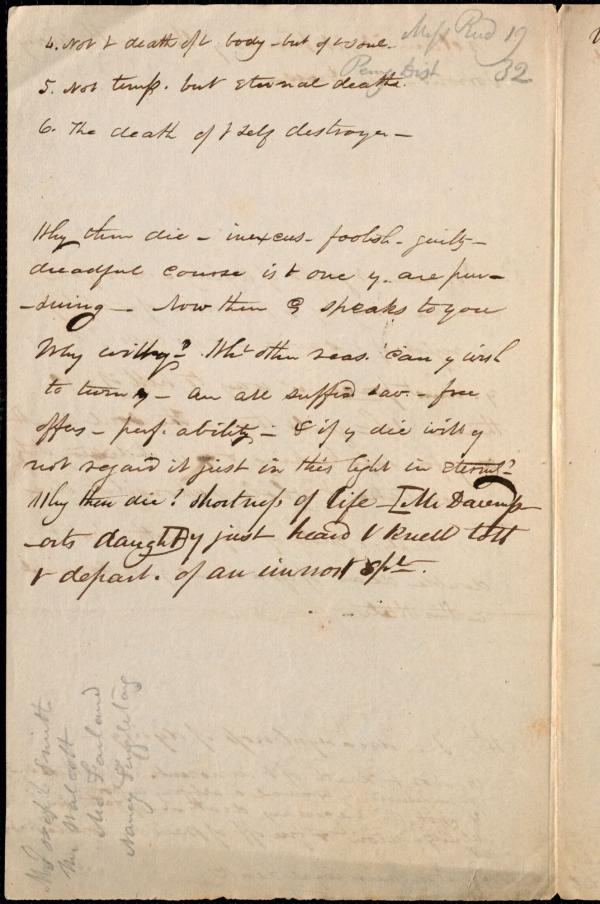 4. Not t death of t body - but of t soul.
5. Not temp. but Eternal death.
6. The death of t self destroyer -
Why then die - inexcus - foolish - guilty -
dreadful course is t one y. are pur-
-suing -. Now then G speaks to you
Why will y? Wht other reas. can y wish
to turn y - an all suffict sav. - free
offers - perf. ability - & if y die will y
not regard it just in this light in Eternl?
Why then die! Shortness of life - [Mr Davenp-
-orts daught] y just heard t knell toll
t depart. of an immort spt.
Miss Rud 19
32
Mrs Joseph Smith
Mr Walcott
Mrs Farland
Nancy Singletary